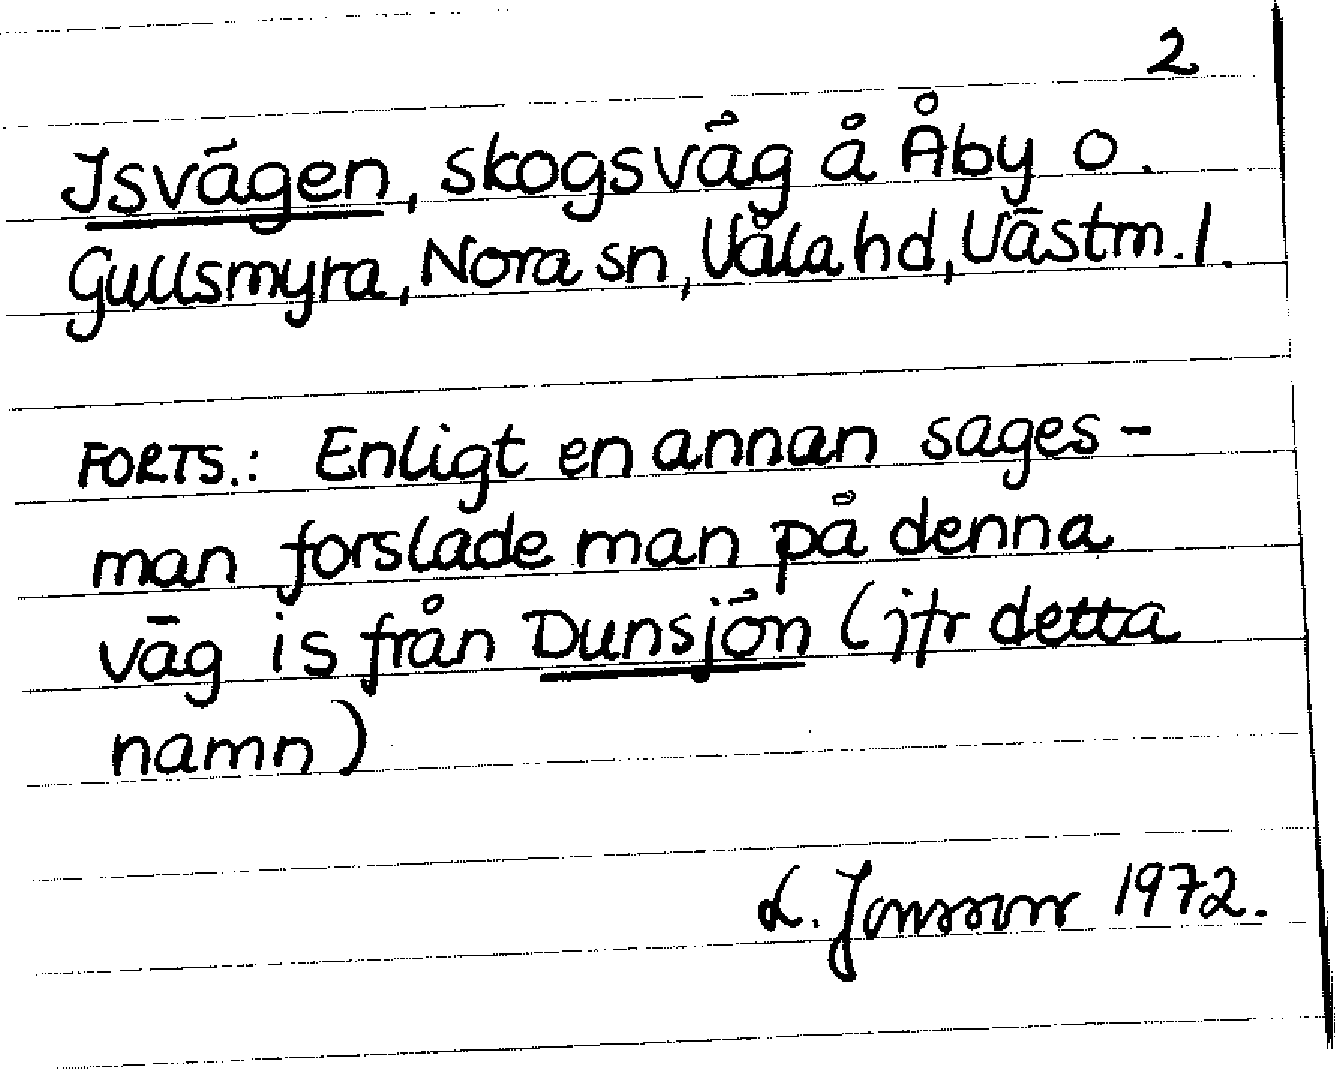 2
Isvägen, skogsväg å Åby o.
Gullsmyra, Nora sn, Våla hd, Västm. l.
FORTS.: Enligt en annan sages-
man forslade man på denna
väg is från Dunsjön (jfr detta
namn)
L. Jonsson 1972.